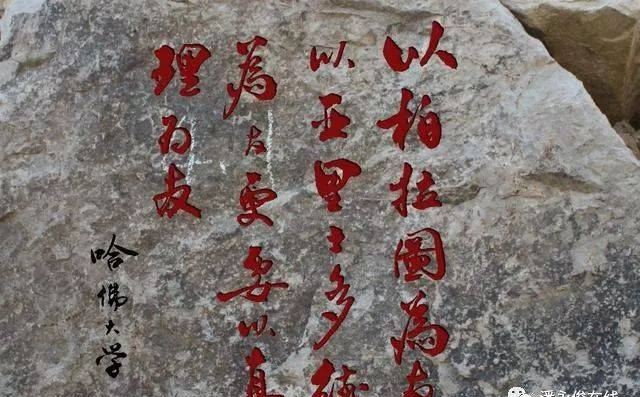 以柏拉圖為友
以亚里士多德
為友更要以真
理为友
哈佛大学
潘永俊在线